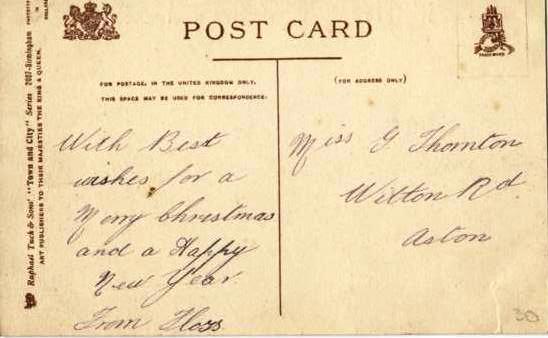 POST CARD
FOR POSTAGE, IN THE UNITED KINGDOM ONLY,
THIS SPACE MAY BE USED FOR CORRESPONDENCE:
(FOR ADDRESS ONLY)
With Best
wishes for a
Merry Christmas
and a Happy
New Year
From Floss
Miss G Thornton
Witton Rd
Aston
Raphael Tuck & Sons' "Town and City" Series 7007-Birmingham
ART PUBLISHERS TO THEIR MAJESTIES THE KING & QUEEN.
30